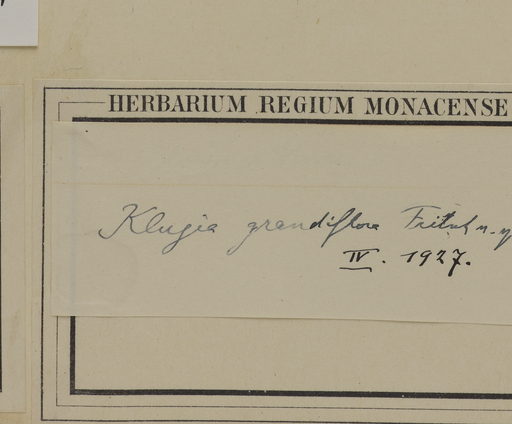 HERBARIUM REGIUM MONACENSE
Klugia grandiflora Fritsch n.
IV. 1927.